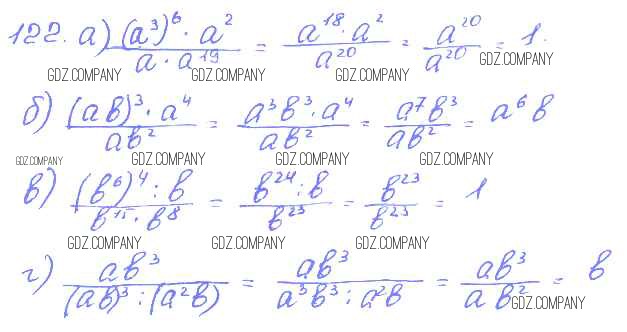 122. а) (a³)⁶ · a² / a · a¹⁹ = a¹⁸ · a² / a²⁰ = a²⁰ / a²⁰ = 1.
GDZ.COMPANY GDZ.COMPANY GDZ.COMPANY GDZ.COMPANY
б) (ab)³ · a⁴ / ab² = a³b³ · a⁴ / ab² = a⁷b³ / ab² = a⁶b
GDZ.COMPANY GDZ.COMPANY GDZ.COMPANY GDZ.COMPANY
в) (b⁶)⁴ : b / b¹⁵ · b⁸ = b²⁴ : b / b²³ = b²³ / b²³ = 1
GDZ.COMPANY GDZ.COMPANY GDZ.COMPANY
г) ab³ / (ab)³ : (a²b) = ab³ / a³b³ : a²b = ab³ / ab² = b
GDZ.COMPANY